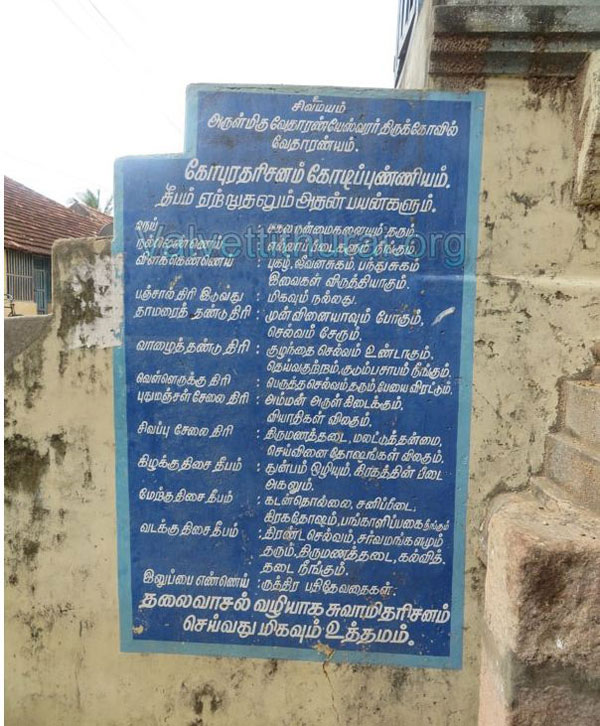 சிவமயம்
அருள்மிகு வேதாரண்யேஸ்வரர் திருக்கோவில்
வேதாரண்யம்.
கோபுரதரிசனம் கோடிப்புண்ணியம்.
தீபம் ஏற்றுதலும் அதன் பயன்களும்.
நெய் : சகல நன்மைகளையும் தரும்.
நல்லெண்ணெய் : எல்லாப் பீடைகளும் நீங்கும்
விளக்கெண்ணெய் : புகழ், ஜீவனசுகம், பந்து சுகம்
இவைகள் விருத்தியாகும்.
பஞ்சால் திரி இடுவது : மிகவும் நல்லது.
தாமரைத் தண்டு திரி : முன்வினையாவும் போகும்,
செல்வம் சேரும்.
வாழைத்தண்டு திரி : குழந்தை செல்வம் உண்டாகும்.
தெய்வகுற்றம், குடும்பசாபம் நீங்கும்.
வெள்ளெருக்கு திரி : பெருத்த செல்வம் தரும், பேயை விரட்டும்.
புதுமஞ்சள் சேலை திரி : அம்மன் அருள் கிடைக்கும்.
வியாதிகள் விலகும்.
சிவப்பு சேலை திரி : திருமணத்தடை, மலட்டுத்தன்மை,
செய்வினை தோஷங்கள் விலகும்.
கிழக்கு திசை தீபம் : துன்பம் ஒழியும், கிரகத்தின் பீடை
அகலும்.
மேற்கு திசை தீபம் : கடன்தொல்லை, சனிப்பீடை,
கிரகதோஷம், பங்காளிப்பகை நீங்கும்
வடக்கு திசை தீபம் : திரண்ட செல்வம், சர்வமங்களமும்
தரும், திருமணத்தடை, கல்வித்
தடை நீங்கும்.
இலுப்பை எண்ணெய் : ருத்திர பதிதேவதைகள்.
தலைவாசல் வழியாக சுவாமி தரிசனம்
செய்வது மிகவும் உத்தமம்.